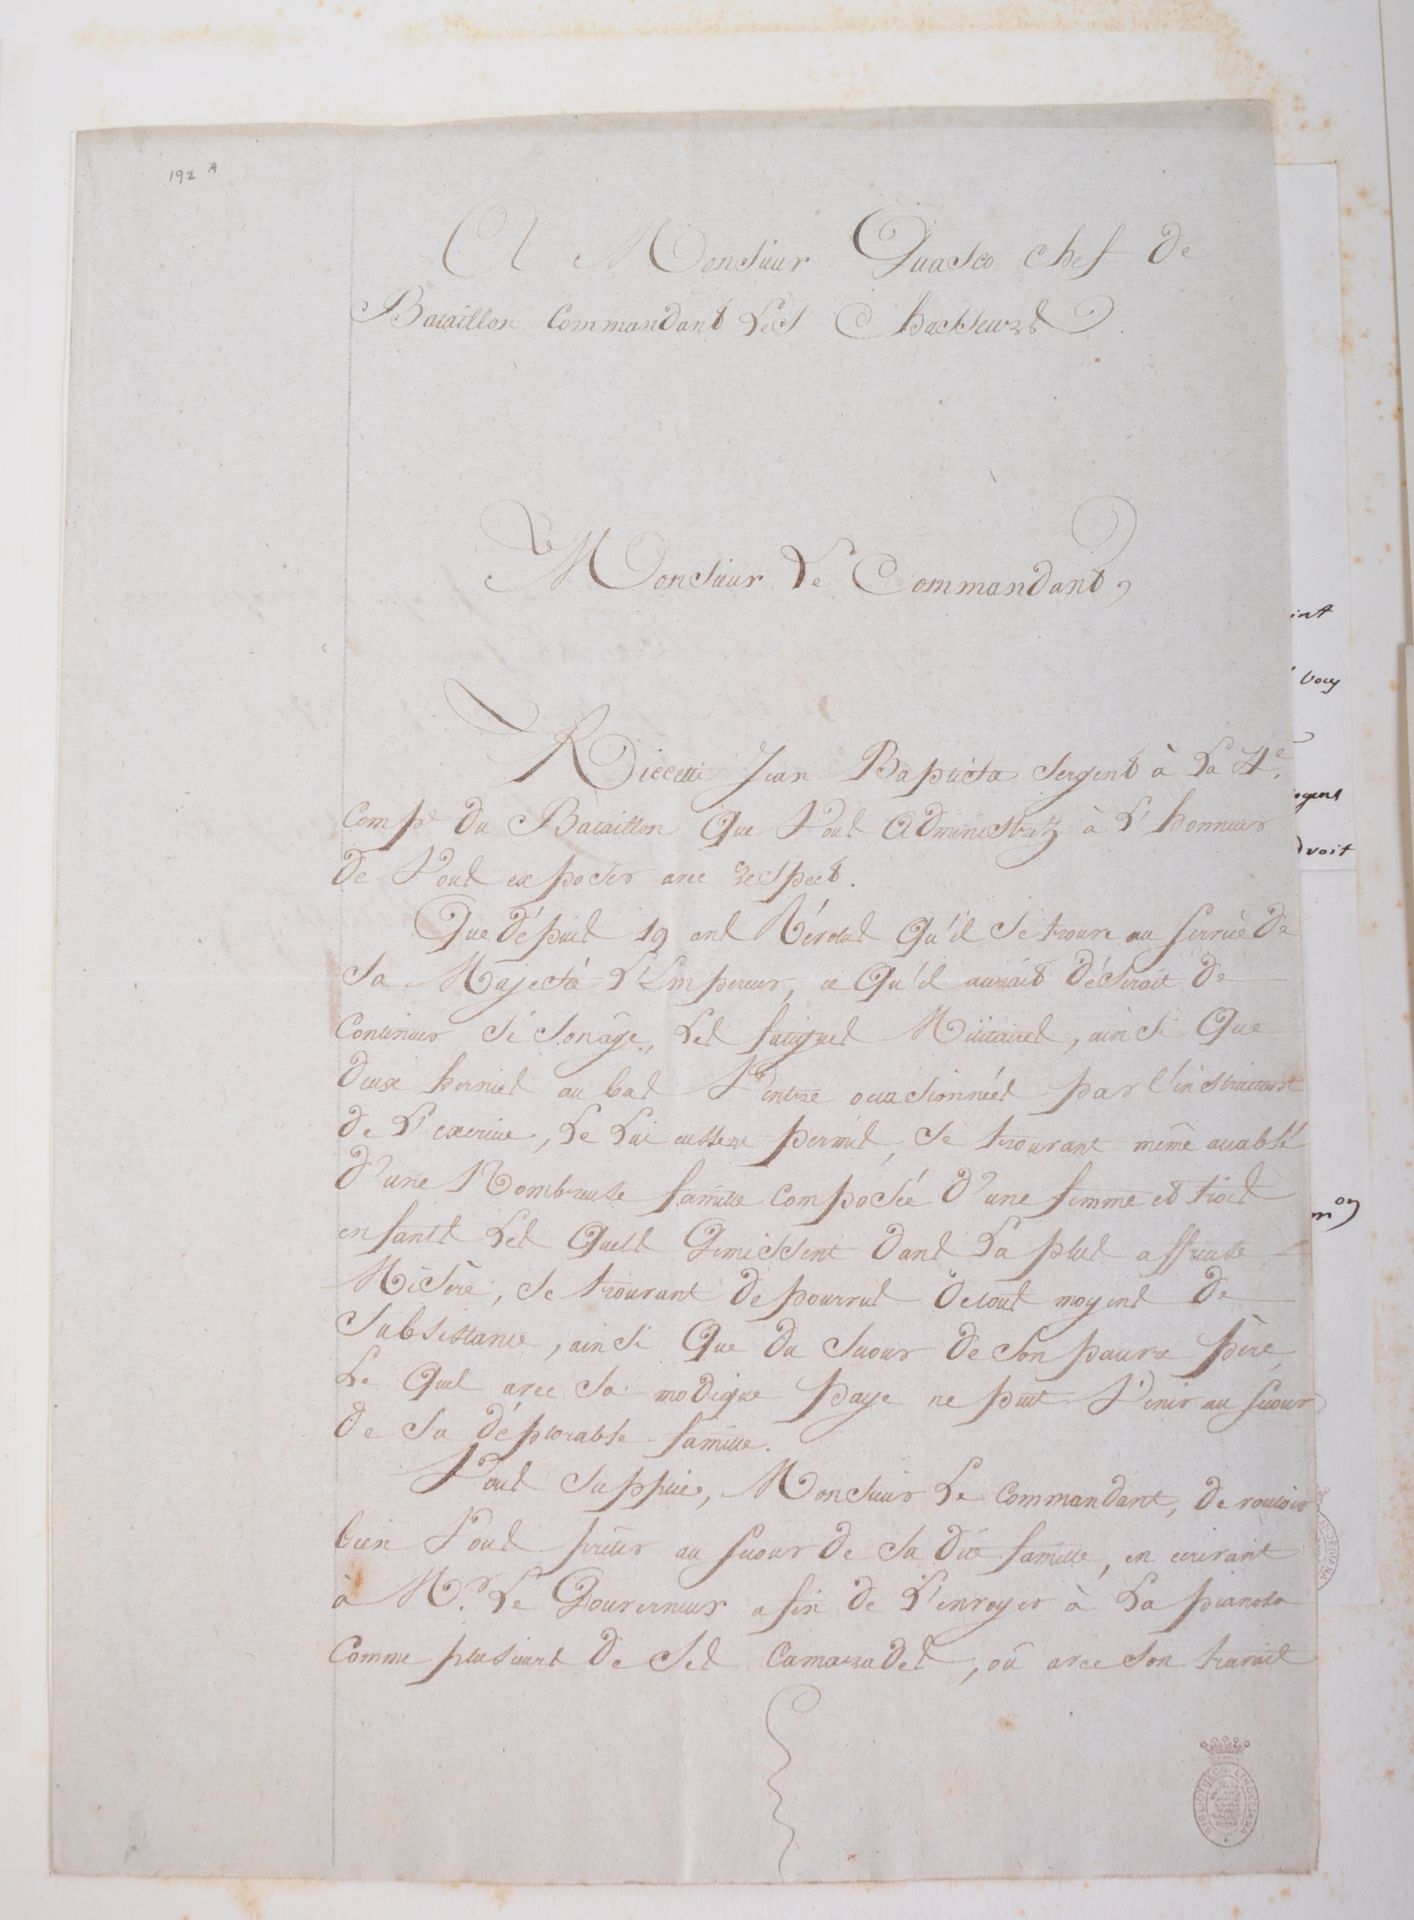 192 A
A Monsieur Guasco chef de
Bataillon commandant Les Chasseurs
Monsieur Le Commandant,
Riccetti Jean Baptiste sergent à La 4e.
Compe. du Bataillon Que Vous Administrez à L'honneur
de Vous exposer avec respect.
Que dépuis 19 ans Révolus Qu'il se trouve au service de
sa Majesté L'Empereur, ce Qu'il aurait désirait de
continuer si son âge, Les fatigues Militaires, ainsi Que
deux hernies au bas Ventre occasionnées par l'instruction
de L'exercice, Le Lui eussent permis, se trouvant même accablé
d'une Nombreuse famille composée d'une femme et trois
enfants Les Quels Gémissent dans La plus affreuse
Misère, se trouvant dépourvus de tous moyens de
subsistance, ainsi Que du secour de son pauvre père,
Le Quel avec sa modique paye ne peut Venir au secour
de sa déplorable famille.
Vous supplie, Monsieur Le commandant, de vouloir
bien Vous prêter au secour de sa dite famille, en écrivant
à Mr. Le Gouverneur afin de L'envoyer à La pianosa
comme plusieurs de ses camarades, où avec son travail
BIBLIOTHECA LINDESIANA
int
vous
voit
mon